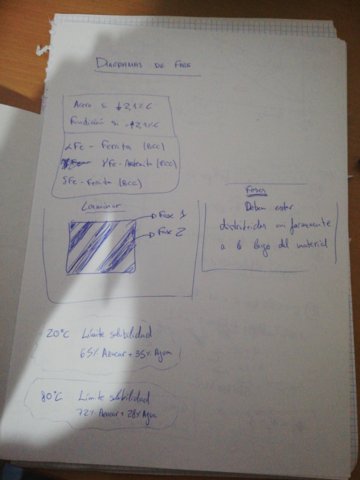 Diagramas de Fase
Acero si ↓2,1% C
Fundición si ↑2,1% C
αFe - Ferrita (BCC)
γFe - Austenita (FCC)
δFe - Ferrita (BCC)
Laminar
Fase 1
Fase 2
Fases
Deben estar
distribuidas uniformemente
a lo largo del material
20°C Límite solubilidad
65% Azucar + 35% Agua
80°C Límite solubilidad
72% Azucar + 28% Agua